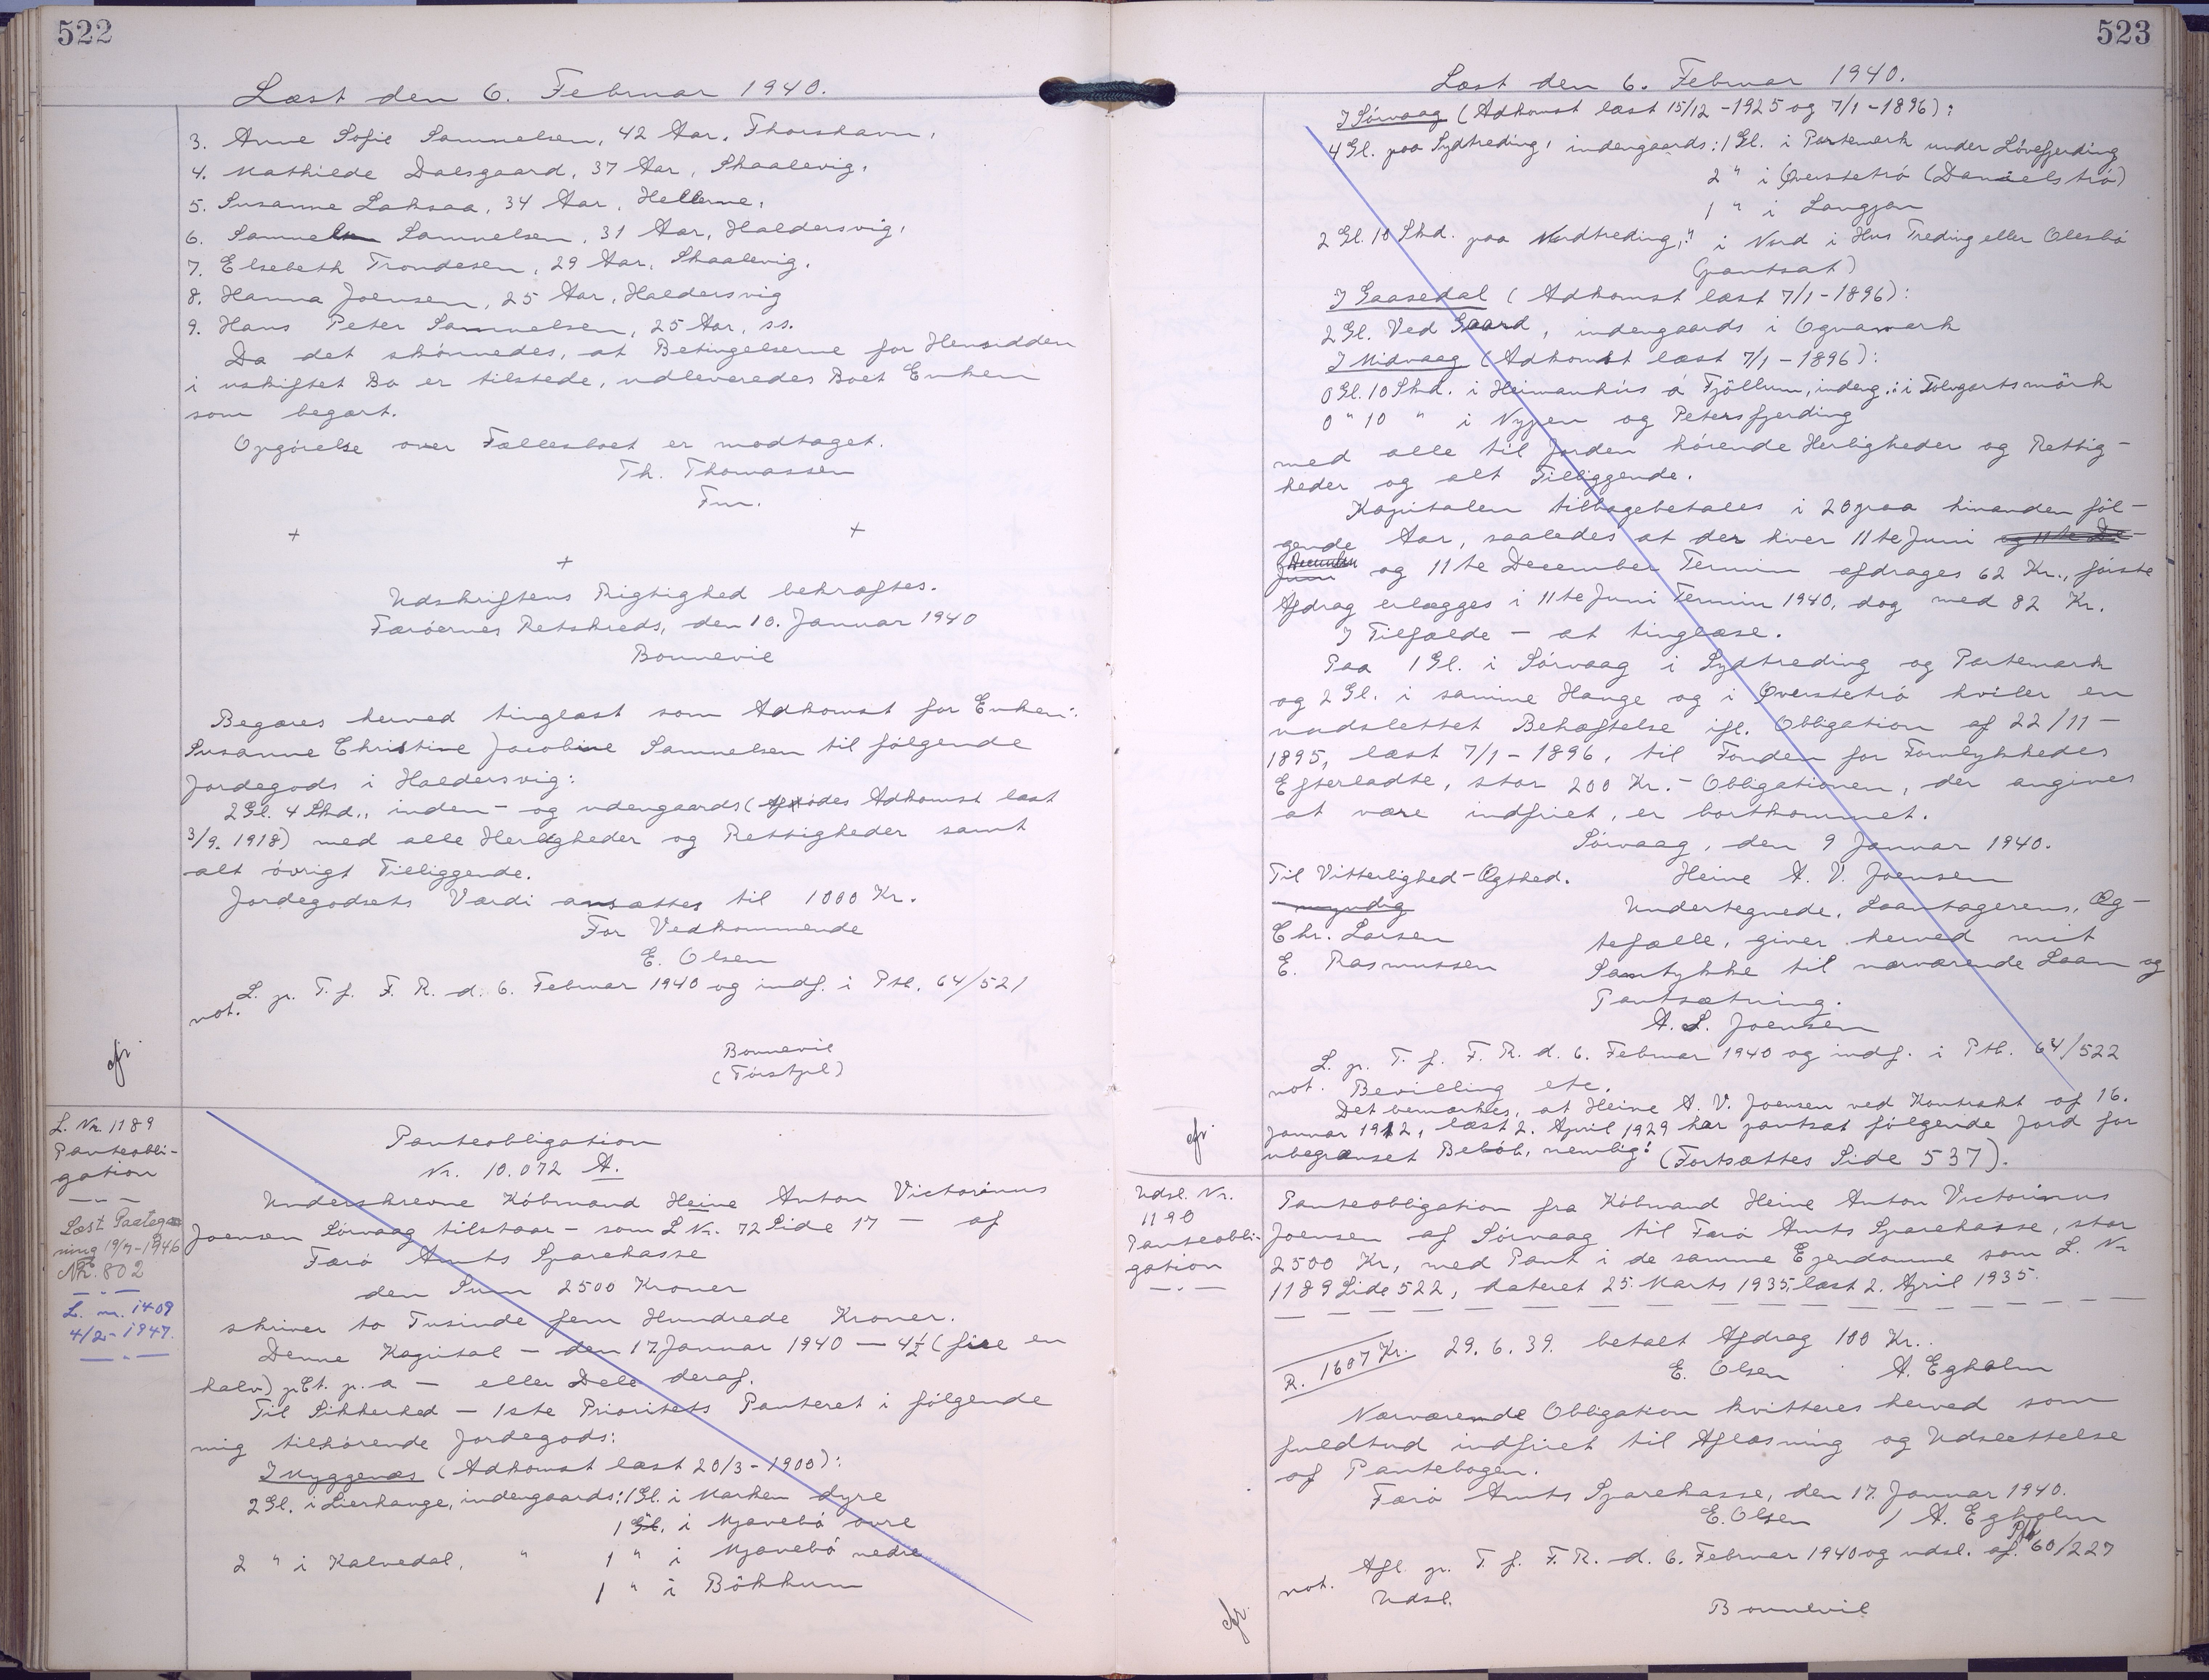 522
Læst den 6. Februar 1940.
3. Anne Sofie Samuelsen, 42 Aar, Thorshavn,
4. Mathilde Dalsgaard, 37 Aar, Skaalevig,
5. Susanne Laksaa, 34 Aar, Hellerne,
6. Samuel Samuelsen, 31 Aar, Haldersvig,
7. Elsebeth Trondesen, 29 Aar, Skaalevig,
8. Hanna Joensen, 25 Aar, Haldersvig
9. Hans Peter Samuelsen, 25 Aar, ss.
Da det skönnedes, at Betingelserne for Hensidden
i uskiftet Bo er tilstede, udleveredes Boet Enken
som begært.
Opgörelse over Fællesboet er modtaget.
Th. Thomassen
Fm.
+ + +
Udskriftens Rigtighed bekræftes.
Færöernes Retskreds, den 10. Januar 1940
Bonnevie
Begæres herved tinglæst som Adkomst for Enken:
Susanne Christine Jacobine Samuelsen til fölgende
Jordegods i Haldersvig:
2 Gl. 4 Skd., inden- og udengaards (Afdödes Adkomst læst
3/9. 1918) med alle Herligheder og Rettigheder samt
alt övrigt Tilliggende.
Jordegodsets Værdi ansættes til 1000 Kr.
For Vedkommende
E. Olsen
L. p. T. f. F. R. d. 6. Februar 1940 og indf. i Ptb. 64/521
not.
Bonnevie
(Förstgil)
cfr.
L. Nr. 1189
Panteobli-
gation
Læst Paateg-
ning 19/7-1946
Nr. 802
L. nr. 1409
4/2- 1947.
Panteobligation
Nr. 10.072 A.
Underskrevne Köbmand Heine Anton Victorinus
Joensen Sörvaag tilstaar - som L Nr. 72 Side 17 - af
Færö Amts Sparekasse
den Sum 2500 Kroner
skriver to Tusinde fem Hundrede Kroner.
Denne Kapital - den 17. Januar 1940 - 4½ (fire en
halv) pCt. p. a - eller Dele deraf.
Til Sikkerhed - 1ste Prioritets Panteret i fölgende
mig tilhörende Jordegods:
I Myggenæs (Adkomst læst 20/3-1900):
2 Gl. i Lierhange, indengaards: 1 Gl. i Marken dyre
1 Gl. i Mjavebö övre
2 " i Kalvedal, " 1 " i Mjavebö nedre
1 " i Bökkum
523
Læst den 6. Februar 1940.
I Sörvaag (Adkomst læst 15/12-1925 og 7/1-1896):
4 Gl. paa Sydtreding, indengaards: 1 Gl. i Partemark under Lövefjerding
2 " i Överstetrö (Danielströ)
1 " i Langjan
2 Gl. 10 Skd. paa Nordtreding, " i Nord i Hus Treding eller Olesbö
(pantsat)
I Gaasedal (Adkomst læst 7/1-1896):
2 Gl. Ved Gaard, indengaards i Ognamark
I Midvaag (Adkomst læst 7/1-1896):
0 Gl. 10 Skd. i Heimanhús á Fjöllum, indeng.: i Tolvgartsmörk
0 " 10 " i Nypen og Petersfjerding
med alle til Jorden hörende Herligheder og Rettig-
heder og alt Tilliggende.
Kapitalen tilbagebetales i 20 paa hinanden föl-
gende Aar, saaledes at der hver 11te Juni og 11te De-
December Juni og 11te December Termin afdrages 62 Kr., förste
Afdrag erlægges i 11te Juni Termin 1940, dog med 82 Kr.
I Tilfælde - at tinglæse.
Paa 1 Gl. i Sörvaag i Sydtreding og Partemark
og 2 Gl. i samme Hange og i Överstetrö hviler en
uudslettet Behæftelse ifl. Obligation af 22/11-
1895, læst 7/1-1896, til Fonden for Forulykkedes
Efterladte, stor 200 Kr. - Obligationen, der angives
at være indfriet, er bortkommet.
Sörvaag, den 9 Januar 1940.
Til Vitterlighed - Ægthed. Heine A. V. Joensen
myndig Undertegnede, Laantagerens, Æg-
Chr. Larsen tefælle, giver herved mit
E. Rasmussen Samtykke til nærværende Laan og
Pantsætning.
A. L. Joensen
L. p. T. f. F. R. d. 6. Februar 1940 og indf. i Ptb. 64/522
not. Bevilling etc.
Det bemærkes, at Heine A. V. Joensen ved Kontrakt af 16.
Januar 1912, læst 2. April 1929 har pantsat fölgende Jord for
ubegrænset Belöb, nemlig: (Fortsættes Side 537).
cfr.
Udsl. Nr.
1190
Panteobli-
gation
Panteobligation fra Köbmand Heine Anton Victorinus
Joensen af Sörvaag til Færö Amts Sparekasse, stor
2500 Kr, med Pant i de samme Ejendomme som L. Nr
1189 Side 522, dateret 25. Marts 1935, læst 2. April 1935.
R. 1607 Kr. 29.6.39. betalt Afdrag 100 Kr.
E. Olsen A. Egholm
Nærværende Obligation kvitteres herved som
fuldtud indfriet til Aflæsning og Udslettelse
af Pantebogen.
Færö Amts Sparekasse, den 17. Januar 1940.
E. Olsen / A. Egholm
Afl. p. T. f. F. R. d. 6. Februar 1940 og udsl. af Ptb 60/227
not. Udsl.
Bonnevie
cfr.